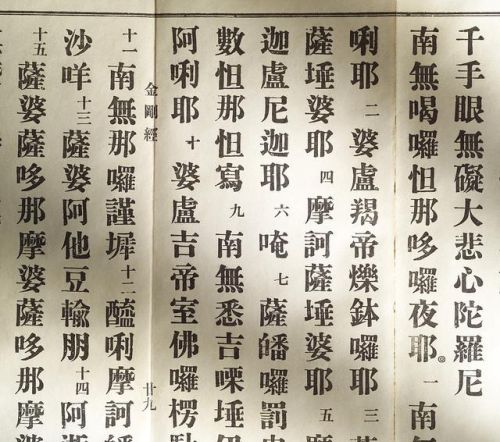 千手眼無礙大悲心陀羅尼
南無喝囉怛那哆囉夜耶。一 南無
唎耶 二 婆盧羯帝爍鉢囉耶 三
薩埵婆耶 四 摩訶薩埵婆耶 五 摩
迦盧尼迦耶 六 唵 七 薩皤囉罰
數怛那怛寫 九 南無悉吉嘌埵伊
阿唎耶 十 婆盧吉帝室佛囉楞馱
金剛經 廿九
十一 南無那囉謹墀 十二 醯唎摩訶皤
沙咩 十三 薩婆阿他豆輸朋 十四 阿逝
十五 薩婆薩哆那摩婆薩哆那摩婆